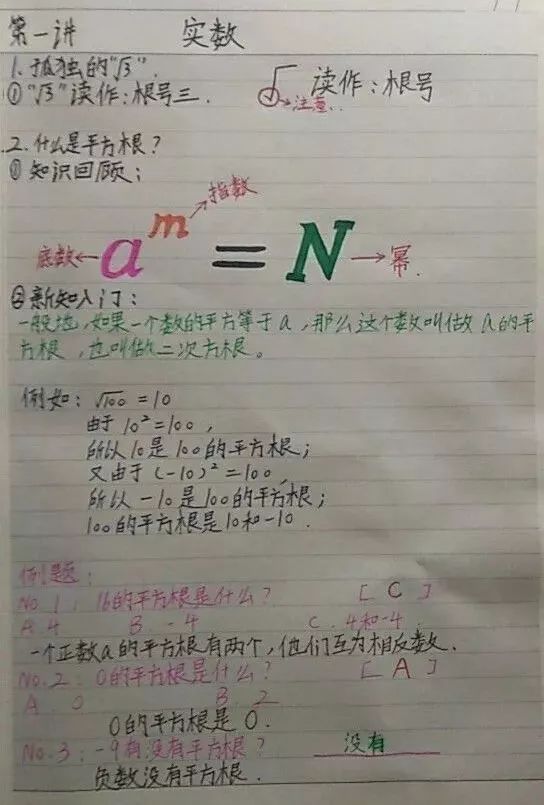 第一讲 实数
1.孤独的"√3".
①"√3"读作:根号三. √ 读作:根号
①→注意..
2.什么是平方根?
①知识回顾:
指数
底数←a^m=N→幂.
②新知入门:
一般地,如果一个数的平方等于a,那么这个数叫做a的平
方根,也叫做二次方根。
例如:√100=10
由于10²=100,
所以10是100的平方根;
又由于(-10)²=100,
所以-10是100的平方根;
100的平方根是10和-10.
例题:
No.1:16的平方根是什么? [C]
A.4 B.-4 C.4和-4
一个正数a的平方根有两个,他们互为相反数.
No.2:0的平方根是什么? [A]
A.0 B.2
0的平方根是0.
No.3:-9有没有平方根? 没有
负数没有平方根.